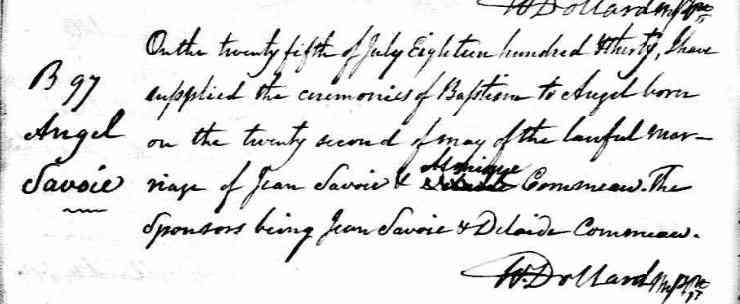 W Dollard
On the twenty fifth of July Eighteen hundred & thirty, I have
B 97
supplied the ceremonies of Baptism to Angel born
Angel
on the twenty second of may of the lawful mar-
Savoie
riage of Jean Savoie & Monique Commeau. The
Sponsors being Jean Savoie & Delaide Commeau.
W. Dollard